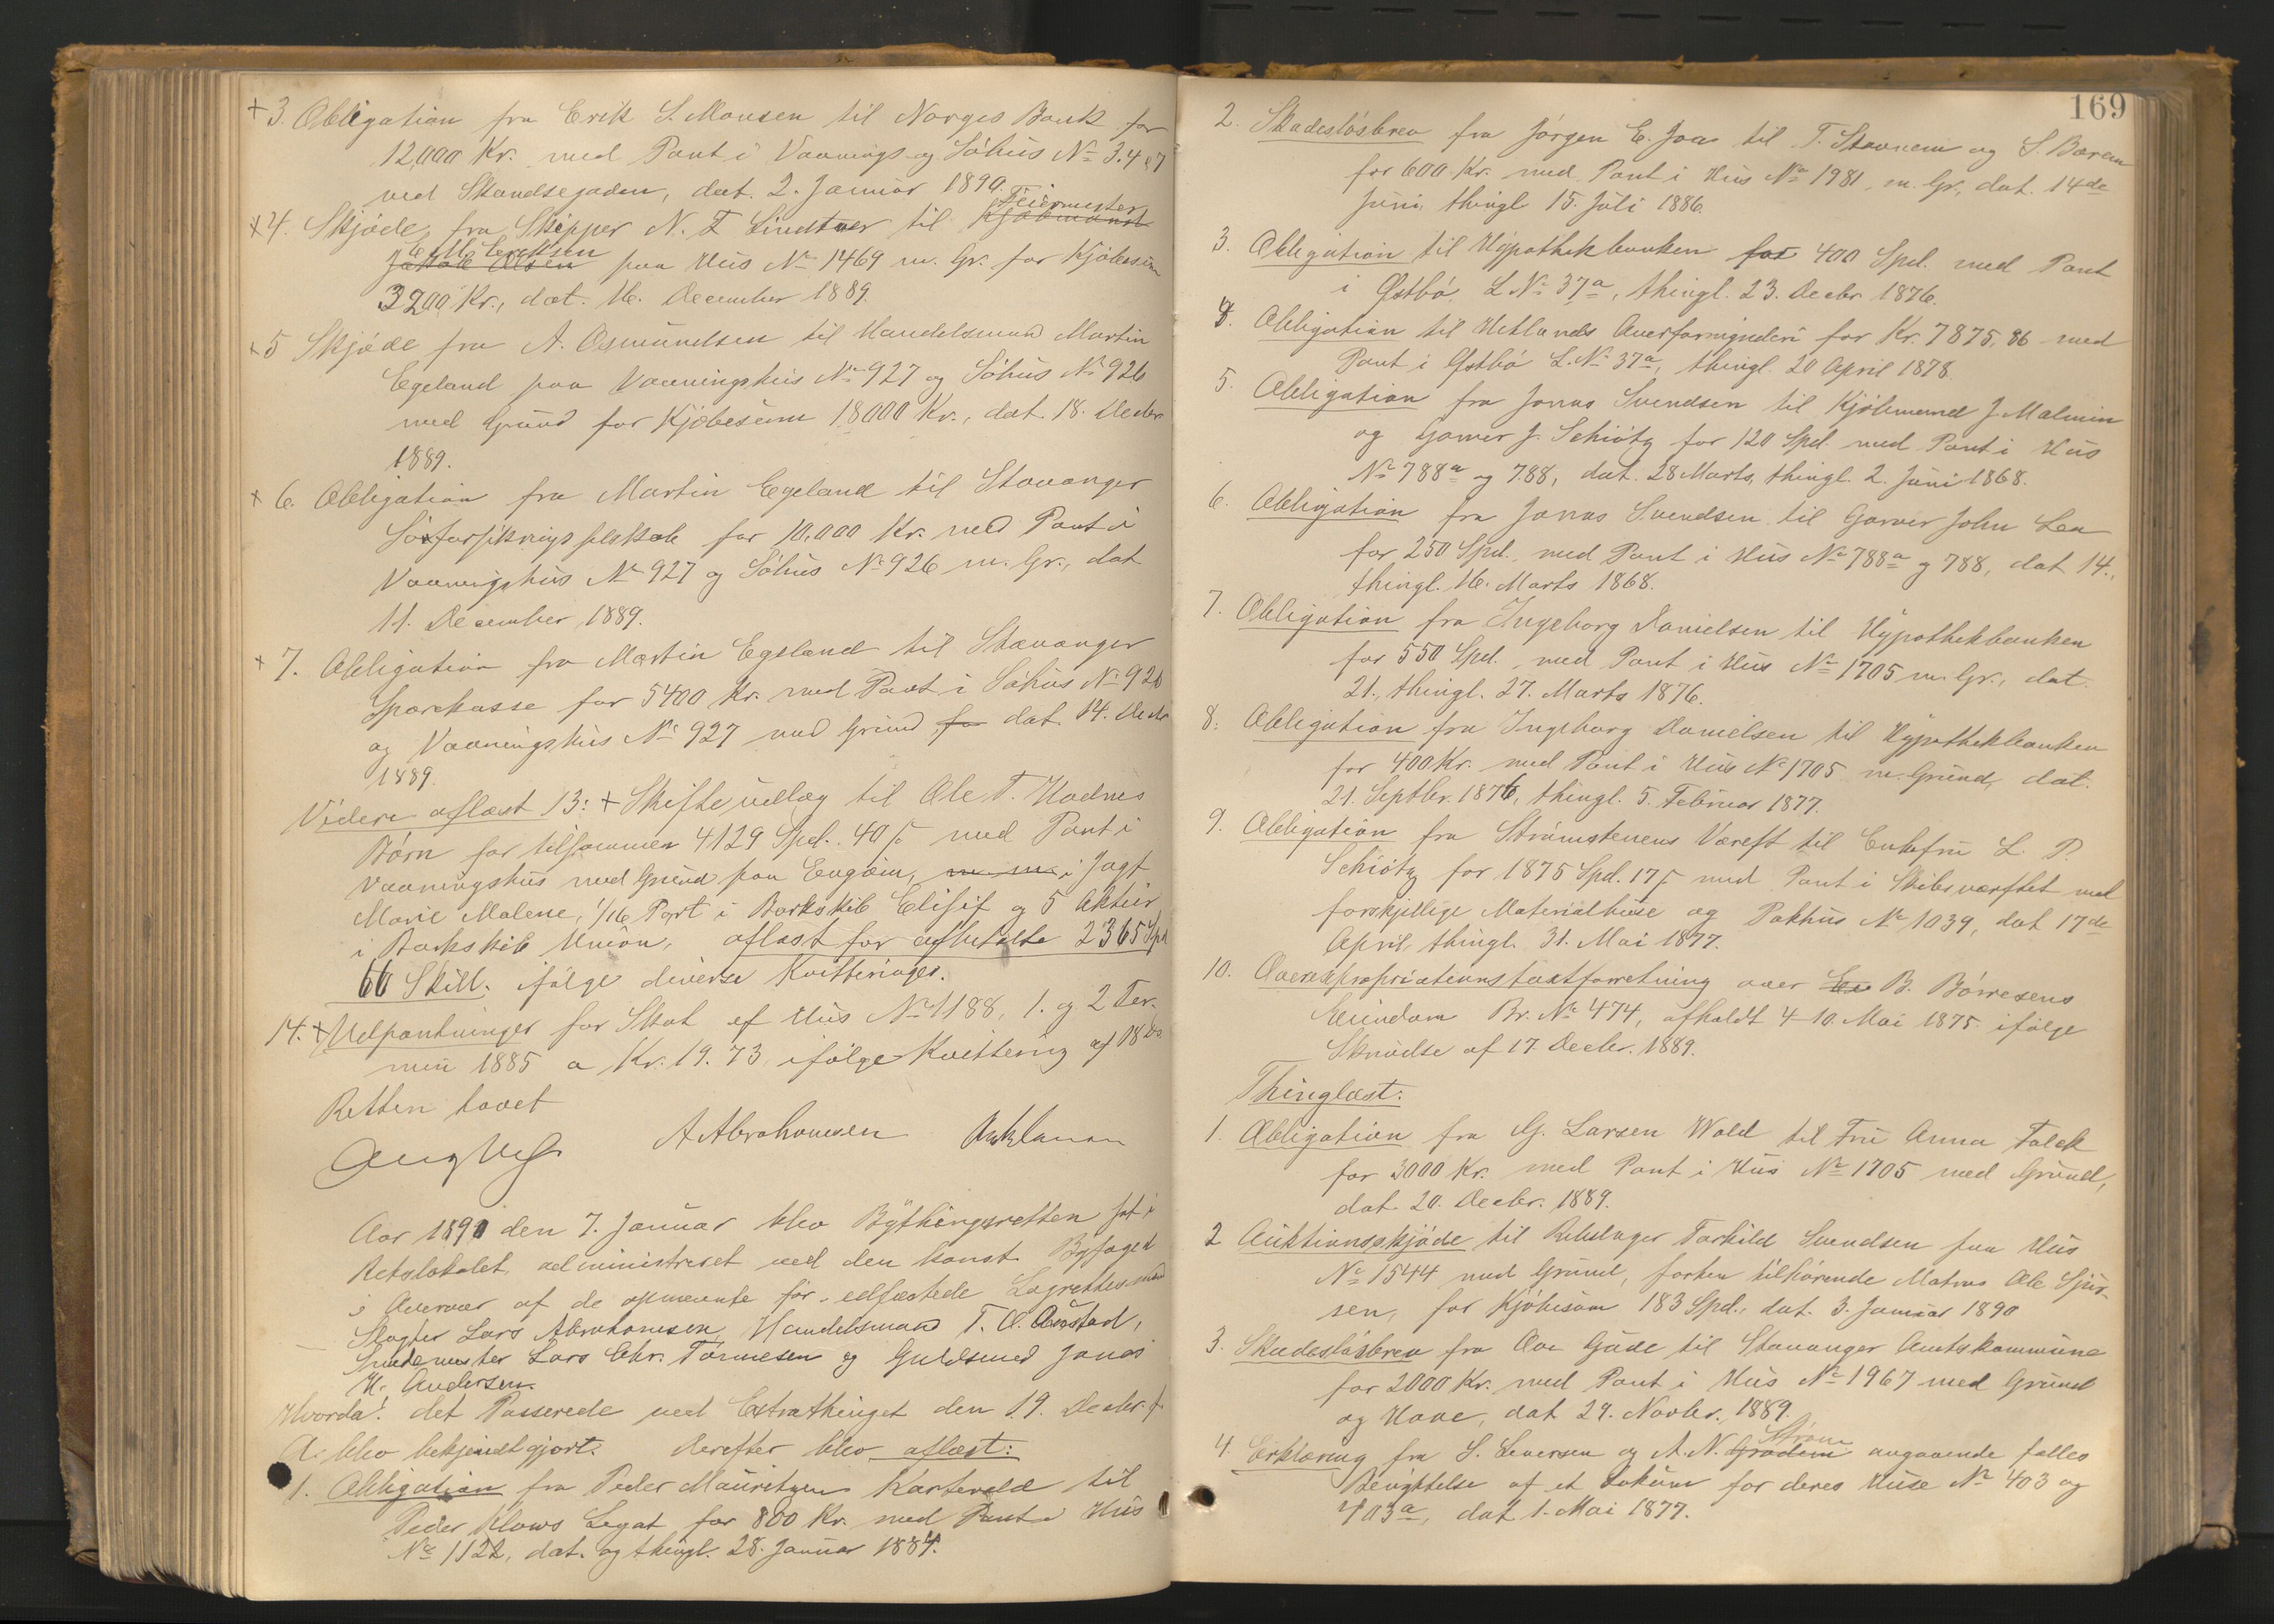 +3. Obligation fra Erik S. Monsen til Norges Bank for
12,000 Kr. med Pant i Vaanings og Söhus No 3.4 & 7
ved Skandsegaden, dat. 2. Januar 1890.
+4. Skjöde fra Skipper N. T. Lindtner til Kjöbmand Feiermester
Jakob Olsen E. M. Eriksen paa Hus No 1469 m. Gr. for Kjöbesum
3200 Kr., dat. 16. December 1889.
+5 Skjöde fra A. Osmundsen til Handelsmand Martin
Egeland paa Vaaningshus No 927 og Söhus No 926
med Grund for Kjöbesum 18000 Kr., dat. 18. Decbr
1889.
+6. Obligation fra Martin Egeland til Stavanger
Söforsikringsselskab for 10,000 Kr. med Pant i
Vaaningshus No 927 og Söhus No 926 m. Gr., dat
11. December 1889.
+7. Obligation fra Martin Egeland til Stavanger
Sparekasse for 5400 Kr. med Pant i Söhus No 926
og Vaaningshus No 927 med Grund for dat. 14. Decbr
1889.
Videre aflæst 13: + Skifteudlæg til Ole T. Hodnes
Börn for tilsammen 4129 Spd. 40 ß med Pant i
Vaaningshus med Grund paa Engöen, i Jagt
Marie Malene, 1/16 Part i Barkskib Elisif og 5 Aktier
i Barkskib Union, aflæst for afbetalte 2365 Spd
60 Skill. ifölge diverse Kvitteringer.
14. + Udpantninger for Skat af Hus No 1188, 1. og 2 Ter-
min 1885 a Kr. 19.73 ifölge Kvittering af 18 ds.
Retten hævet
A Abrahamsen
Aar 1890 den 7. Januar blev Bythingsretten sat i
Retslokalet, administreret ved den const. Byfoged
i Overvær af de opnævnte för edfæstede Lagrettesmænd
Slagter Lars Abrahamsen, Handelsmand T. O. Austad,
Smedemester Lars Chr. Tönnesen og Guldsmed Jonas
H. Andersen.
Hvorda: det Passerede ved Extrathinget den 19. Decbr. f.
A. blev bekjendtgjort. Derefter blev aflæst:
1. Obligation fra Peder Mauritzen Kartevold til
Peder Klows Legat for 800 Kr. med Pant i Hus
No 1122, dat. og thingl. 28. Januar 1884.
169
2. Skadeslösbrev fra Jörgen E. Joa til T. Stavnem og S. Boren
for 600 Kr. med Pant i Hus No 1981, m. Gr., dat. 14de
Juni, thingl. 15. Juli 1886.
3. Obligation til Hypothekbanken for 400 Spd. med Pant
i Östbö, L. No 37a, thingl. 23. Decbr 1876.
4. Obligation til Hetlands Overformynderi for Kr. 7875,86 med
Pant i Östbö L. No 37a, thingl. 20 April 1878.
5. Obligation fra Jonas Svendsen til Kjöbmand J. Malmin
og Garver J. Schiötz for 120 Spd. med Pant i Hus
No 788a og 788, dat. 28 Marts, thingl. 2. Juni 1868.
6. Obligation fra Jonas Svendsen til Garver John Lea
for 250 Spd. med Pant i Hus No 788a og 788, dat 14.,
thingl. 16. Marts 1868.
7. Obligation fra Ingeborg Danielsen til Hypothekbanken
for 550 Spd. med Pant i Hus No 1705 m. Gr., dat.
21., thingl. 27. Marts 1876.
8. Obligation fra Ingeborg Danielsen til Hypothekbanken
for 400 Kr. med Pant i Hus No 1705 m. Grund, dat.
21. Septbr. 1876, thingl. 5. Februar 1877.
9. Obligation fra Strömstenens Værft til Enkefru L. P.
Schiötz for 1875 Spd. 17 ß med Pant i Skibsværftet med
forskjellige Materialhuse og Pakhus No 1039, dat 17de
April, thingl. 31. Mai 1877.
10. Overexpropriationstaxtforretning over B. Börresens
Eiendom Br. No 474, afholdt 4-10. Mai 1875 ifölge
Skrivelse af 17. Decbr. 1889.
Thinglæst:
1. Obligation fra G. Larsen Wold til Fru Anna Falck
for 3000 Kr. med Pant i Hus No 1705 med Grund,
dat. 20. Decbr. 1889.
2 Auktionsskjöde til Rebslager Torkild Svendsen paa Hus
No 1544 med Grund, forhen tilhörende Matros Ole Sjur-
sen, for Kjöbesum 183 Spd., dat. 3. Januar 1890
3. Skadeslösbrev fra Ove Gude til Stavanger Amtskommune
for 2000 Kr. med Pant i Hus No 1967 med Grund
og Have, dat 29. Novbr. 1889.
4. Erklæring fra S. Seversen og A. N. Grödem Ström angaaende fælles
Benyttelse af et Lokum for deres Huse No 403 og
403a, dat 1. Mai 1877.